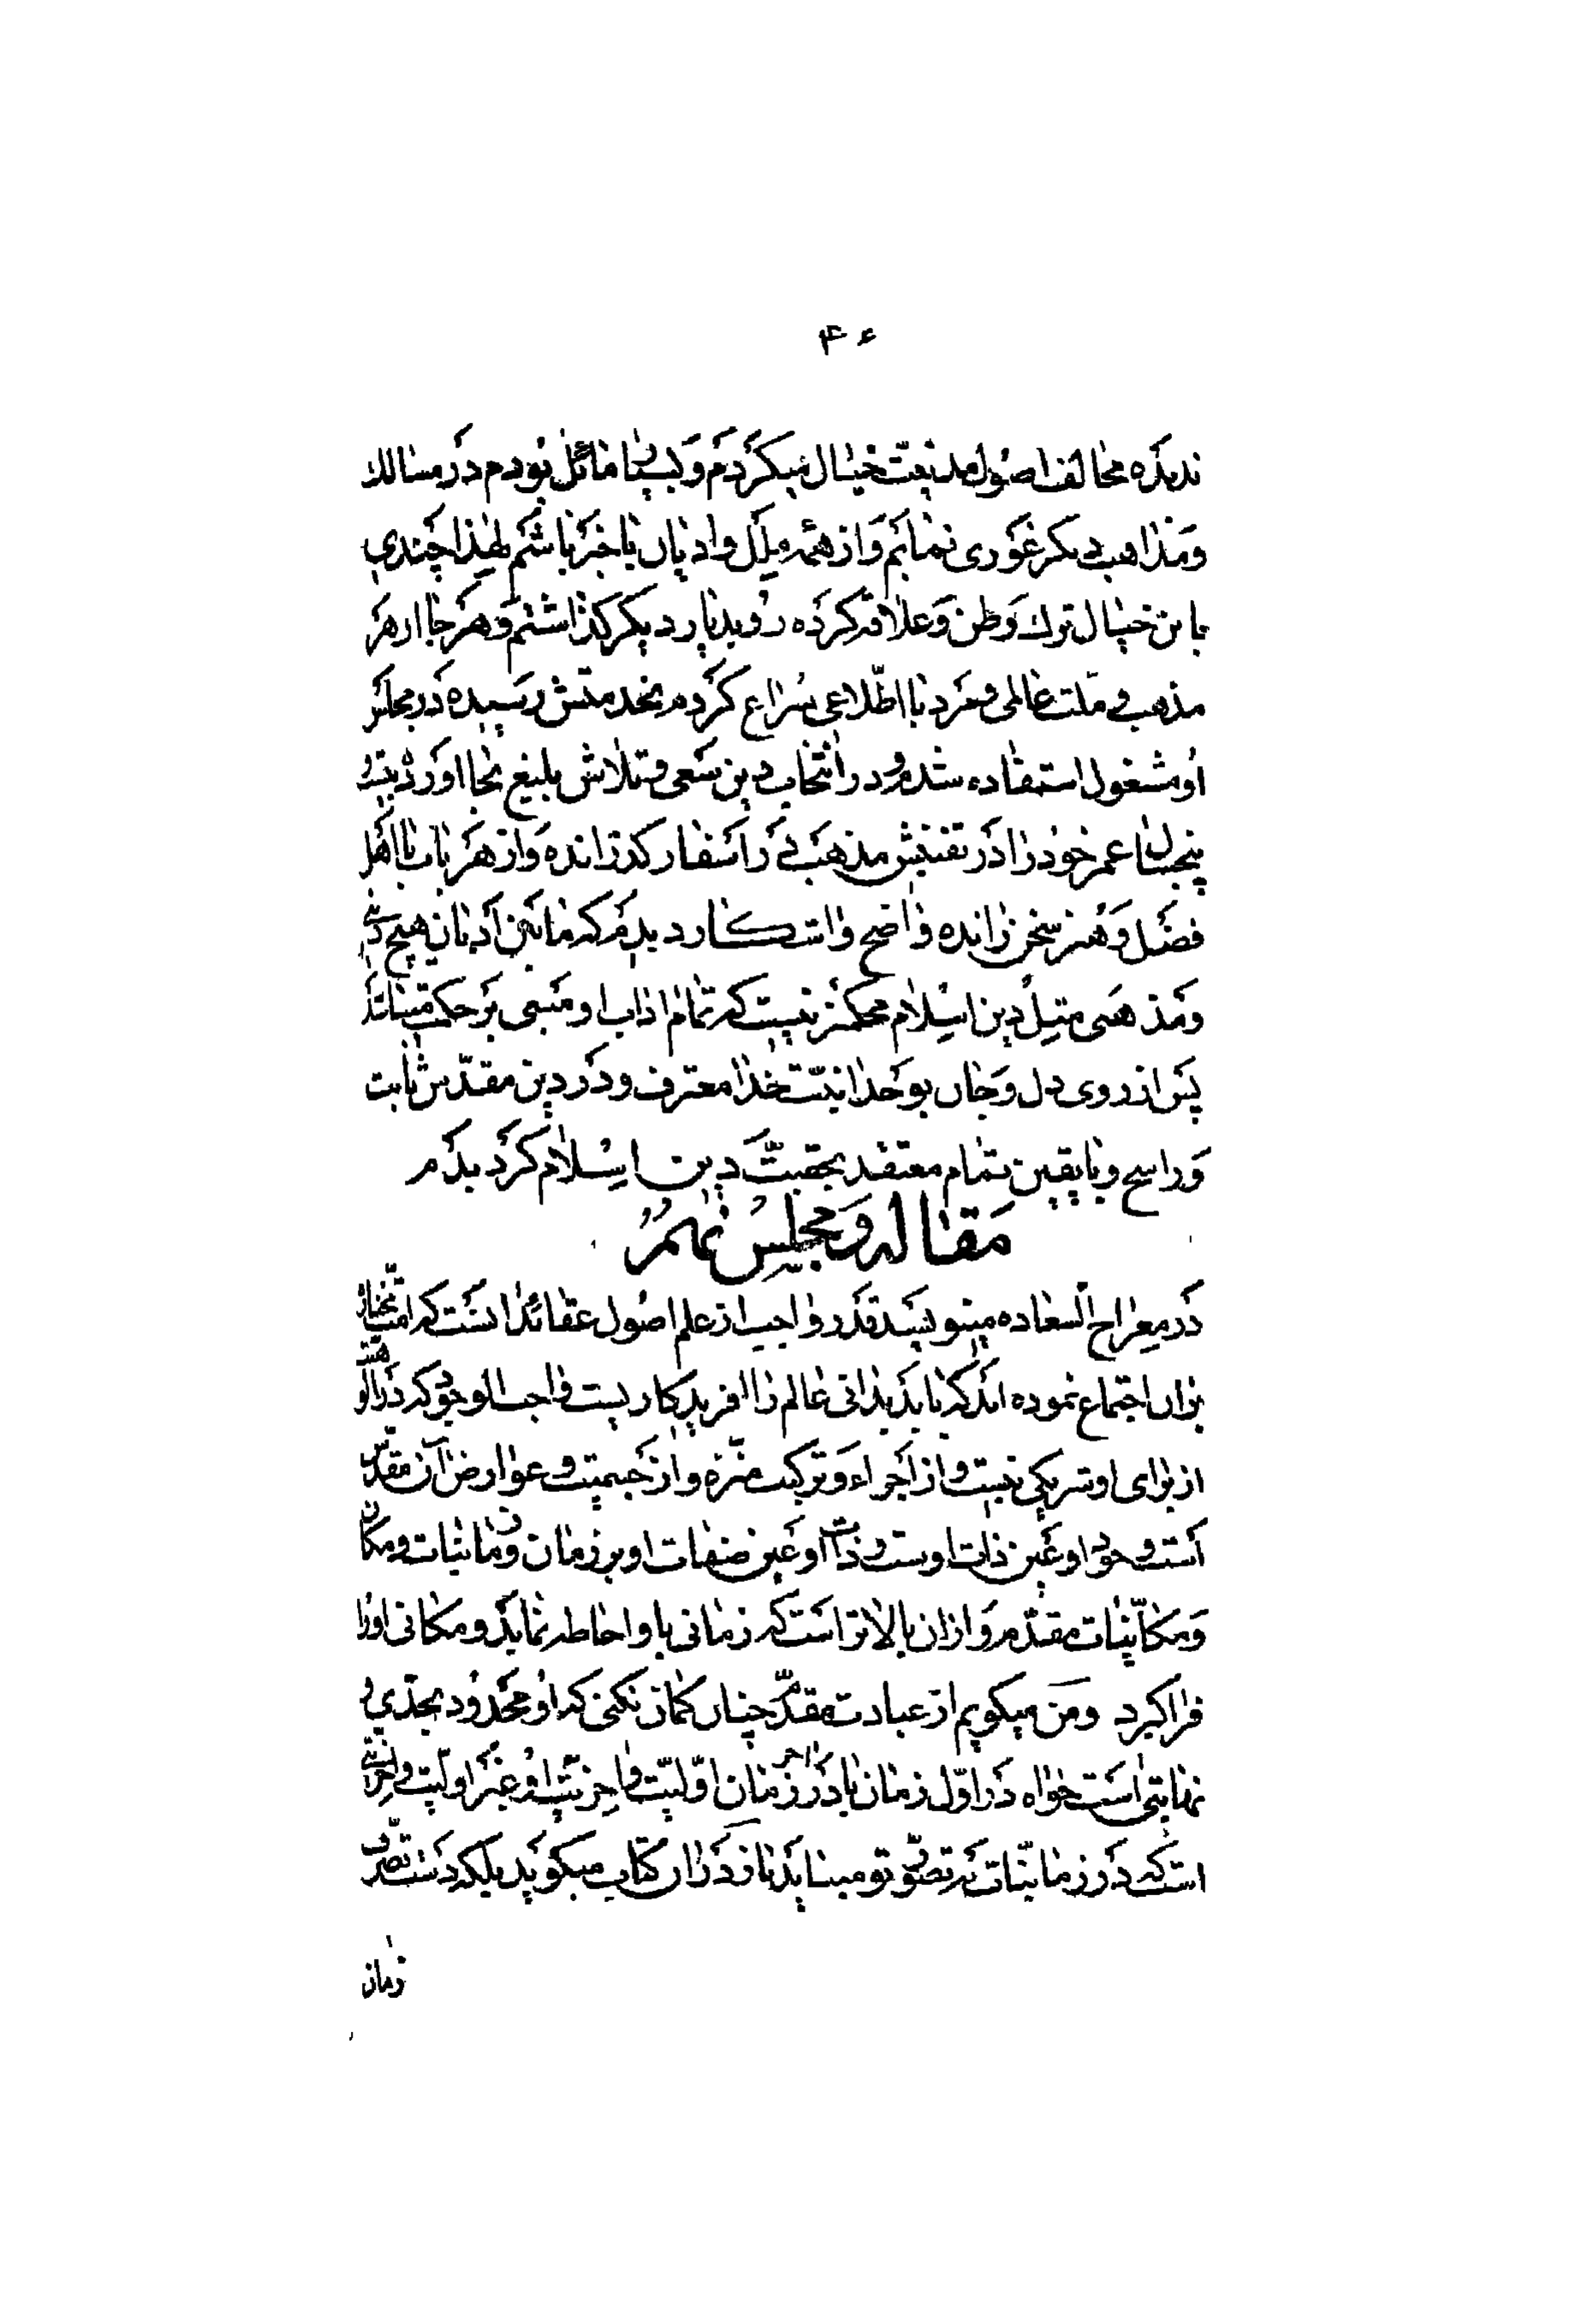 ۴۶
ندیده مخالف اصول مدنیّت خیال میکردم و بسی مائل بودم در مسالک
و مذاهب دیگر غوری نمایم و از همه ملل و ادیان باخبر باشم لهذا چندی
باین خیال ترک وطن و علاقه کرده رو بدیار دیگر گذاشتم و هر جا از هر
مذهب و ملت عالمی و مرد با اطّلاعی سراغ کردم بخدمتش رسیده در مجلس
او مشغول استفاده شدم و در انتخاب دین سعی و تلاش بلیغ بجا آورد
پنجسال عمر خود را در تفتیش مذهب در اسفار گذرانده و از هر باب با اهل
فضل و هنر سخن رانده واضح و اشکار دیدم که مابین ادیان هیچ دینی
و مذهبی مثل دین اسلام محکمتر نیست که تمام اداب او مبنی بر حکمت
پس از روی دل و جان بوحدانیّت خدا معترف و در دین مقدّس ثابت
و راسخ و با یقین تمام معتقد بحقیّت دین اسلام گردیدم
مقاله و مجلس نهم
در معراج السعاده مینویسد قدر واجب از علم اصول عقائد آنست که امت مختار
بران اجتماع نموده اند که باید بدانی عالم را افریدگاریست واجب الوجود که در الوهیّت
از برای او شریکی نیست و از اجزاء و ترکیب منزّه و از جسمیت و عوارض آن مقدّس
است وجود او عین ذات اوست و ذات او عین صفات او بر زمان و زمانیات و مکان
و مکانیّات مقدّم و از ان بالاتر است که زمانی باو احاطه نماید و مکانی او را
فرا گیرد و من میگویم از عبارت مقدّم چنان گمان نکنی که او محدود بحدّی و
نهایتی است خواه در اوّل زمان یا در اخر زمان اوّلیّت و اخریّت او غیر اولیّت و اخریّتی
است که در زمانیّات به تصوّر تو میاید باز در ان کتاب میگوید بلکه دست تصرّف
زمان